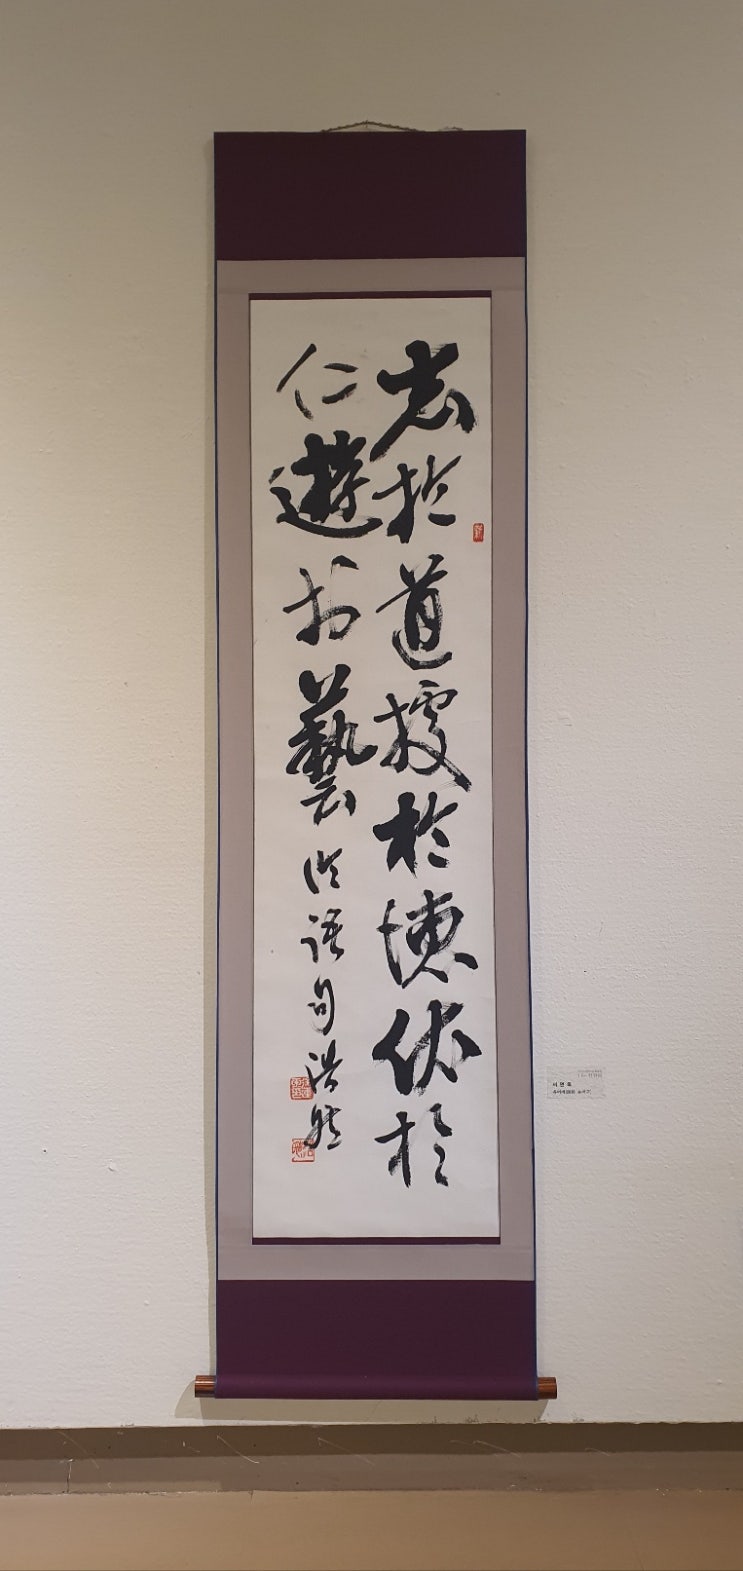 志於道據於德依於
仁遊於藝 論語句 浩然